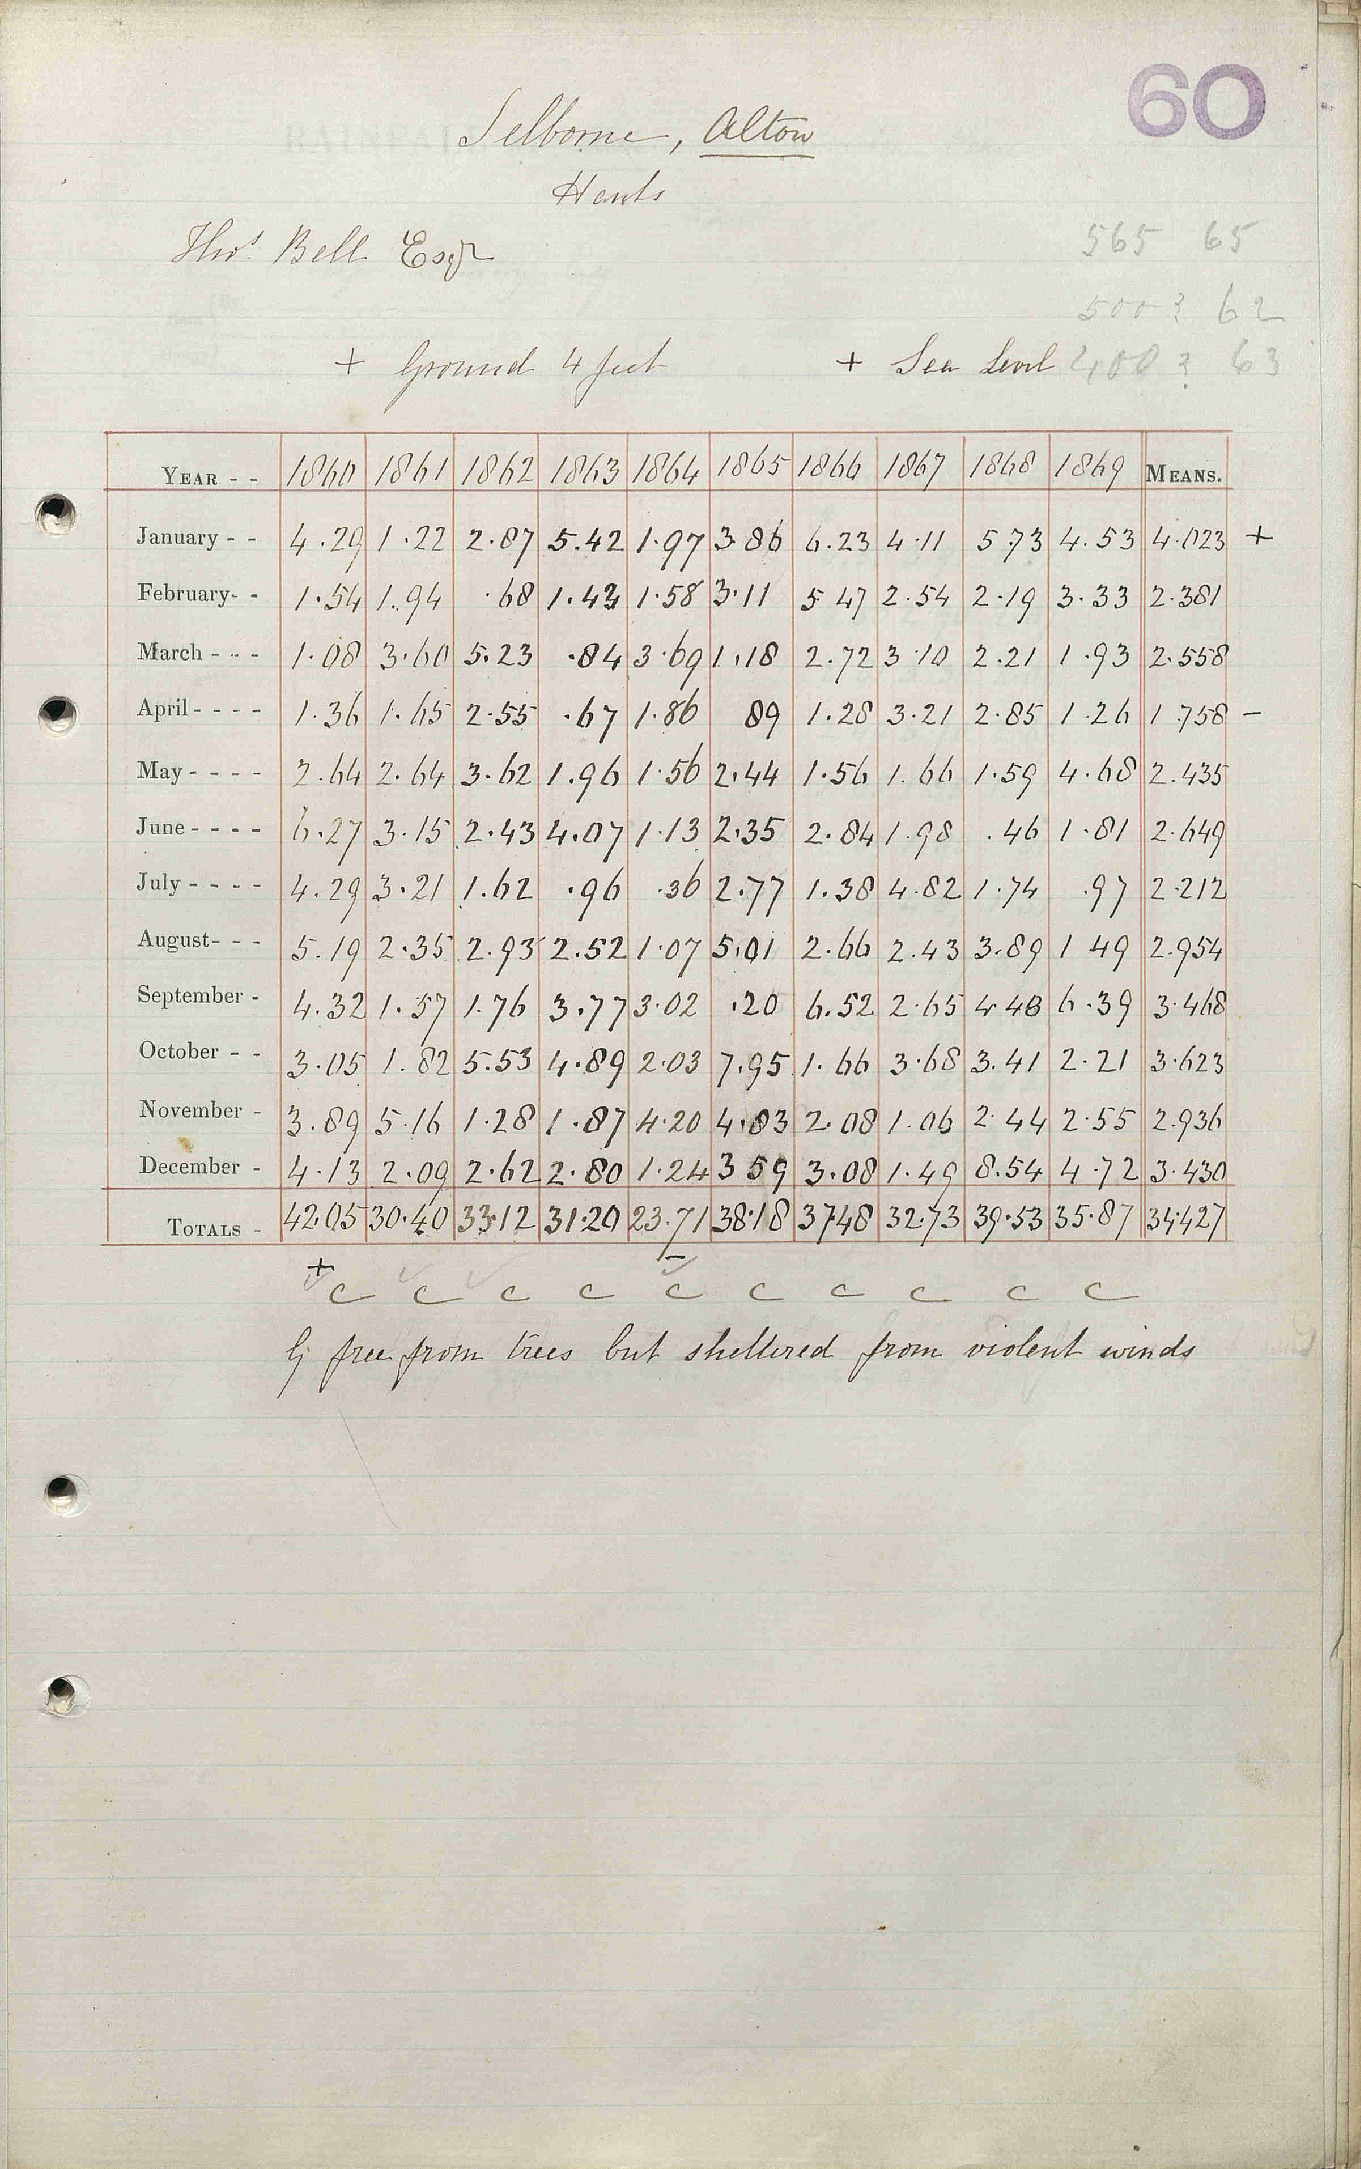 60
Selborne, Alton
Hants
Thos. Bell Esqr
565 65
500? 62
+ Ground 4 feet + Sea Level 400? 63
YEAR - - 1860 1861 1862 1863 1864 1865 1866 1867 1868 1869 MEANS.
January - - 4.29 1.22 2.87 5.42 1.97 3.86 6.23 4.11 5.73 4.53 4.023 +
February- - 1.54 1.94 .68 1.43 1.58 3.11 5.47 2.54 2.19 3.33 2.381
March - - - 1.08 3.60 5.23 .84 3.69 1.18 2.72 3.10 2.21 1.93 2.558
April - - - - 1.36 1.65 2.55 .67 1.86 89 1.28 3.21 2.85 1.26 1.758 -
May - - - - 2.64 2.64 3.62 1.96 1.56 2.44 1.56 1.66 1.59 4.68 2.435
June - - - - 6.27 3.15 2.43 4.07 1.13 2.35 2.84 1.98 .46 1.81 2.649
July - - - - 4.29 3.21 1.62 .96 .36 2.77 1.38 4.82 1.74 .97 2.212
August- - - 5.19 2.35 2.93 2.52 1.07 5.01 2.66 2.43 3.89 1 49 2.954
September - 4.32 1.57 1.76 3.77 3.02 .20 6.52 2.65 4.48 6.39 3.468
October - - 3.05 1.82 5.53 4.89 2.03 7.95 1.66 3.68 3.41 2.21 3.623
November - 3.89 5.16 1.28 1.87 4.20 4.83 2.08 1.06 2.44 2.55 2.936
December - 4.13 2.09 2.62 2.80 1.24 3 59 3.08 1.49 8.54 4.72 3.430
TOTALS - 42.05 30.40 33.12 31.20 23.71 38.18 37.48 32.73 39.53 35.87 34.427
+ -
c c c c c c c c c c
G free from trees but sheltered from violent winds